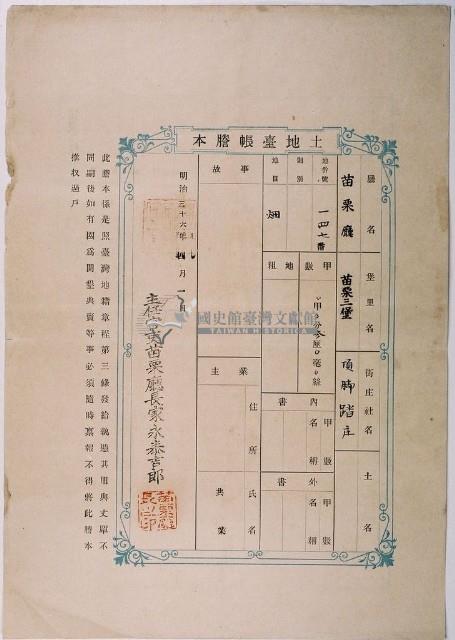 土地臺帳謄本
廳名
苗栗廳
堡里名
苗栗三堡
街庄社名
頂脚踏庄
土名
地番號
一四七番
則別
地目
畑
甲數
〇甲〇分參厘〇毫〇絲
地租
內書
甲數
名稱
外書
甲數
名稱
事故
業主
住所
氏名
典業
明治三十六年四月一日
主任官吏苗栗廳長家永泰吉郎
苗栗廳長之印
國史館臺灣文獻館
TAIWAN HISTORICA
此謄本係是照臺灣地籍章程第三條發給執憑其用與丈單不
同嗣後如有因爲開墾典賣等事必須隨時稟報不得將此謄本
換收過戶